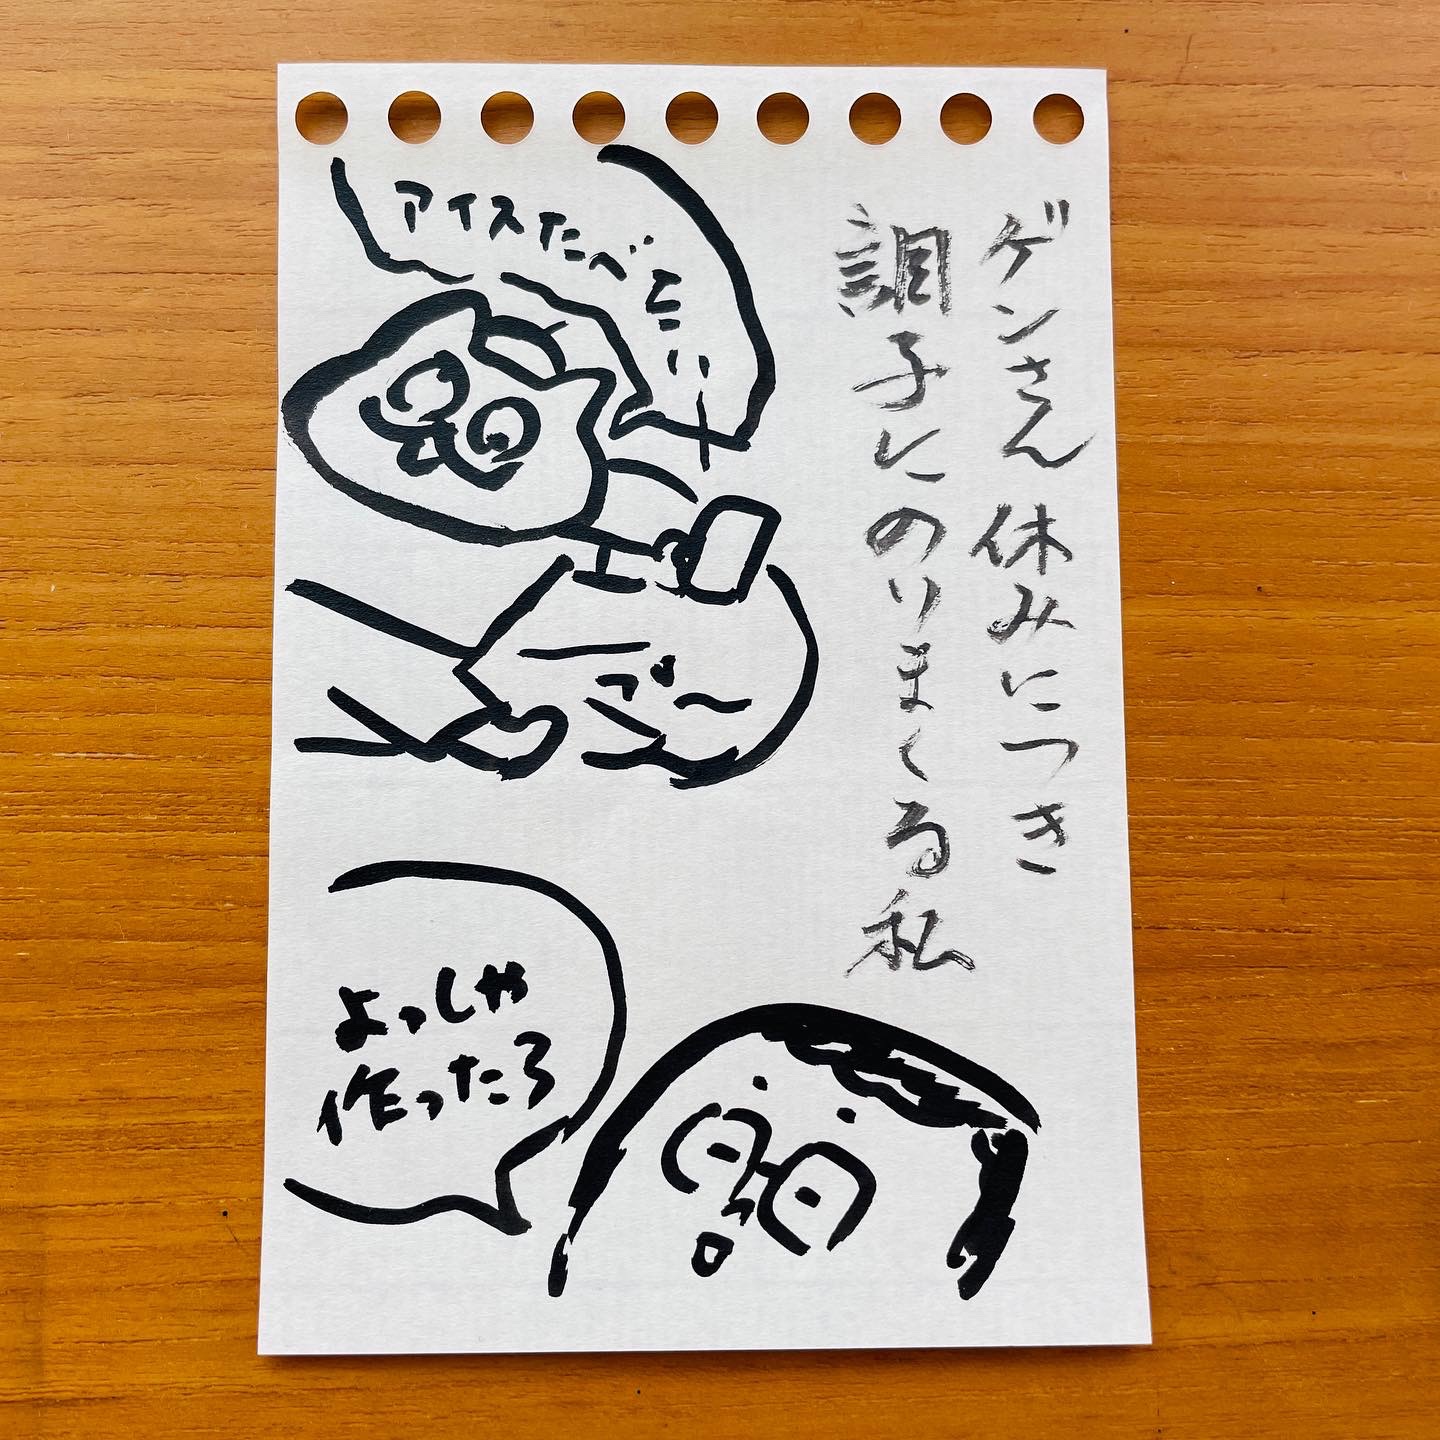 ゲンさん 休みにつき
調子にのりまくる私
アイスたべ
よっしゃ
作ったろ